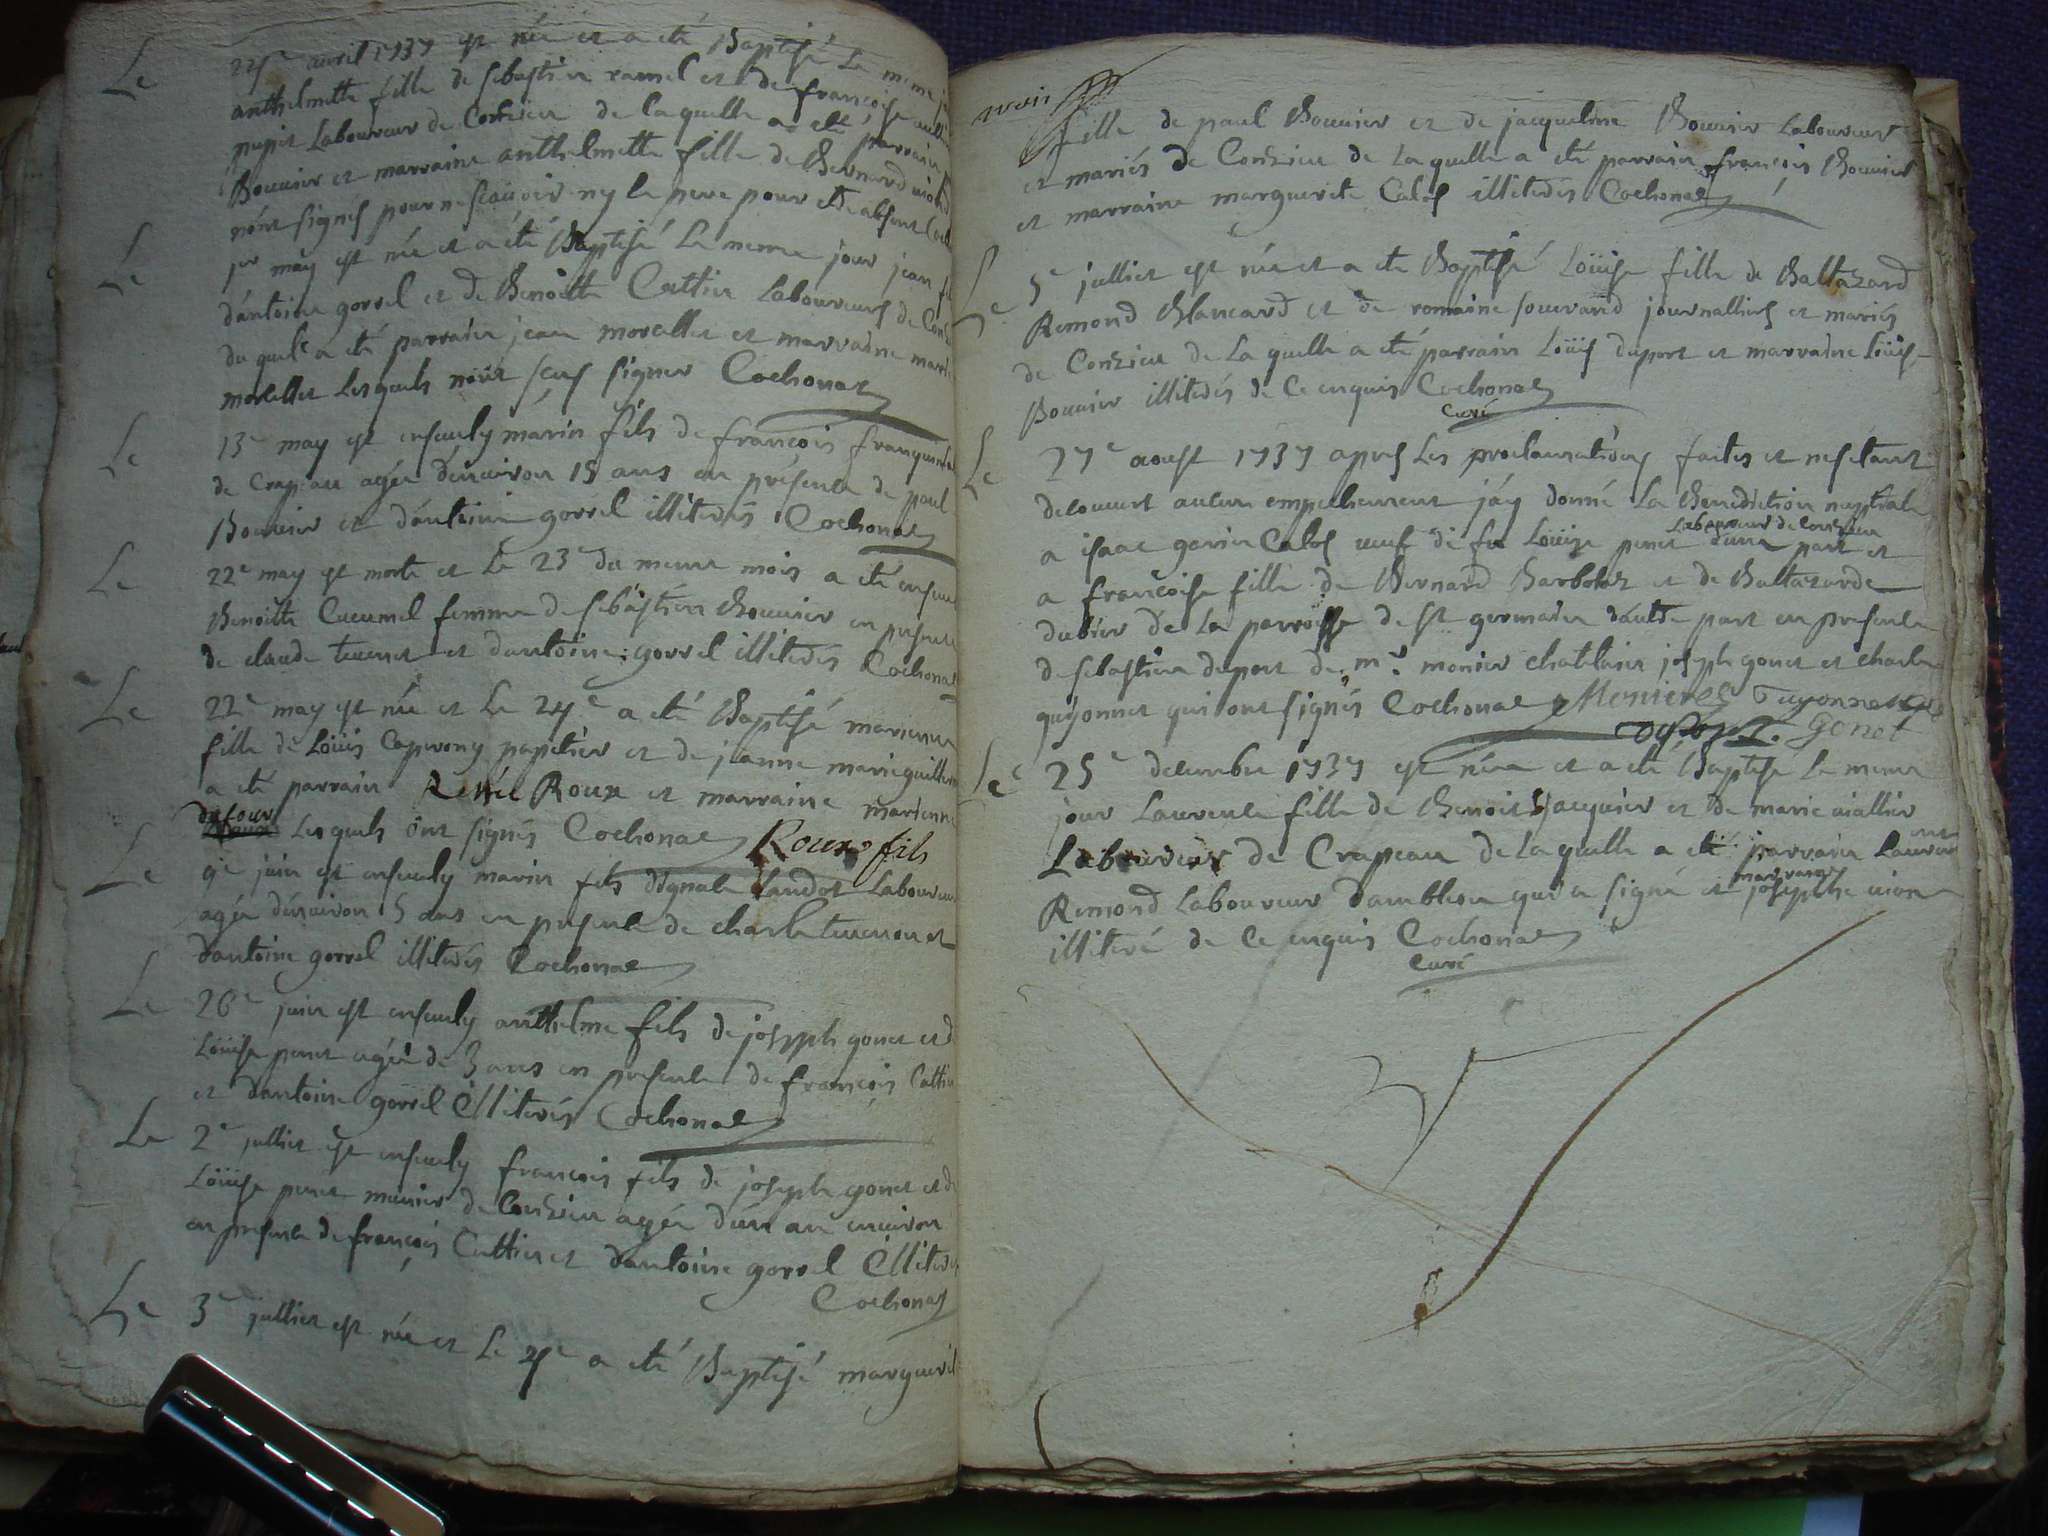 Le 24e avril 1737 est née et a été Baptisé Le meme
anthelmette fille de sebastien ramel et de françoise
pupit Laboureur de Conzieu de laquelle a été parrain
Bouvier et marraine anthelmette fille de Bernard
n'ont signes pour ne scavoir ny le pere pour etre absent
Le 1er may est née et a été Baptisé Le meme jour jean
d'antoine gorrel et de Benoitte Cattin Laboureurs de
du quel a été parrain jean morellet et marraine marie
morellet Lesquels n'ont sceus signer Cochonat
Le 13e may est ensevely marin fils de françois
de Crapeau agée d'environ 18 ans en présence de paul
Bouvier et d'antoine gorrel illiterés Cochonat
Le 22e may est morte et Le 23e du meme mois a été
Benoitte Cucumel femme de sebastien Bouvier en presence
de claude tevenet et d'antoine gorrel illiterés Cochonat
Le 22e may est née et Le 24e a été Baptisé marienne
fille de Loüis Caprony papetier et de jeanne marie
a été parrain Renée Roux et marraine marienne
dufour Lesquels ont signés Cochonat Roux fils
Le 9e juin est ensevely marin fils d'ignace Laboureur
agée d'environ 5 ans en presence de charle tevenon et
d'antoine gorrel illiterés Cochonat
Le 26e juin est ensevely anthelme fils de joseph gonet et de
Loüise penet agée de 3 ans en presence de françois Cattin
et d'antoine gorrel illiterés Cochonat
Le 2e juillet est ensevely françois fils de joseph gonet et de
Loüise penet munier de Conzieu agée d'un an environ
en presence de françois Cattin et d'antoine gorrel illiterés
Cochonat
Le 3e juillet est née et Le 4e a été Baptisé
fille de paul Bouvier et de jacqueline Bouvier Laboureur
et mariés de Conzieu de Laquelle a été parrain françois Bouvier
et marraine marguerite Calos illiterés Cochonat
Le 5e juillet est née et a été Baptisé Loüise fille de Baltazard
Remond Blancard et de romaine journalliers et mariés
de Conzieu de Laquelle a été parrain Loüis duport et marraine Loüise
Bouvier illiterés de Ce enquis Cochonat
Curé
Le 27e aoust 1737 apres Les proclamations faites et nes'etant
decouvert aucun empechement j'ay donné La Benediction nuptiale
Laboureur de conzieu
a isaac Calos veuf de fu Loüise penet d'une part et
a françoise fille de Bernard Barbolat et de Baltazarde
dubier de La parroisse de st germain d'autre part en presence
de sebastien duport de mr monier chatelain joseph gonet et charle
guyonnet qui ont signés Cochonat Monier guyonnet
duport Gonet
Le 25e decembre 1737 est née et a été Baptisé Le meme
jour Laurence fille de Benoit jacquier et de marie viallier
Laboureur de Crapeau de Laquelle a été parrain Laurent
marraine
Remond Laboureur d'ambleon qui a signé et josephte
illiteré de Ce enquis Cochonat
Curé